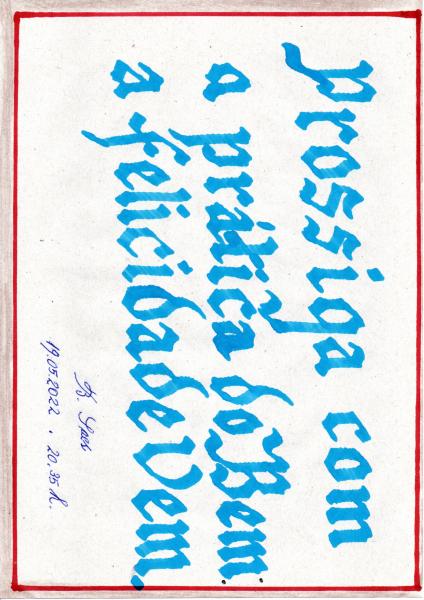 Prossiga com
a prática do Bem.
a felicidade Vem.
19.05.2022 . 20.35 H.